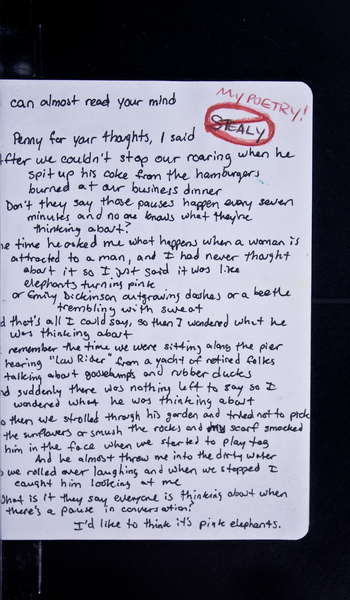 can almost read your mind
MY POETRY!
STEALY
Penny for your thoughts, I said
After we couldn't stop our roaring when he
spit up his coke from the hamburgers
burned at our business dinner
Don't they say those pauses happen every seven
minutes and no one knows what they're
thinking about?
he time he asked me what happens when a woman is
attracted to a man, and I had never thought
about it so I just said it was like
elephants turning pink
or Emily Dickinson outgrowing dashes or a beetle
trembling with sweat
d that's all I could say, so then I wondered what he
was thinking about
remember the time we were sitting along the pier
hearing "Low Rider" from a yacht of retired folks
talking about goosebumps and rubber ducks
nd suddenly there was nothing left to say so I
wondered what he was thinking about
o then we strolled through his garden and tried not to pick
the sunflowers or smush the rocks and my scarf smacked
him in the face when we started to play tag
And he almost threw me into the dirty water
o we rolled over laughing and when we stopped I
caught him looking at me
What is it they say everyone is thinking about when
there's a pause in conversation?
I'd like to think it's pink elephants.